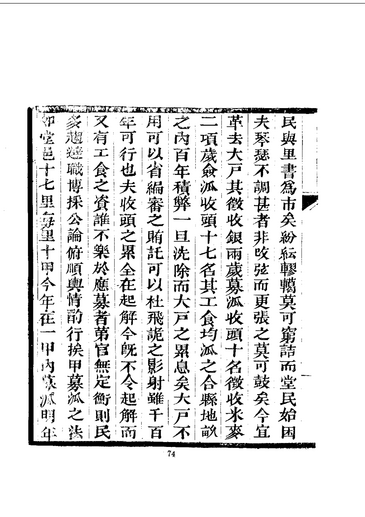 民與里書爲市矣紛紜轇轕莫可窮詰而堂民始困
夫琴瑟不調甚者非咬弦而更張之莫可鼓矣今宜
革去大戸其徵收銀兩歲募派收頭十名徵收米麥
二項歲僉派收頭十七名其工食均派之合縣地畝
之內百年積弊一旦洗除而大戸之累息矣大戸不
用可以省編審之賄託可以杜飛詭之影射雖千百
年可行也夫收頭之累全在起解今旣不令起解而
又有工食之資誰不樂於應募者第官無定衡則民
多趨避職博採公論俯順輿情酌行挨甲募派之法
堂邑十七里每里十甲今年在一甲內募派明年
74